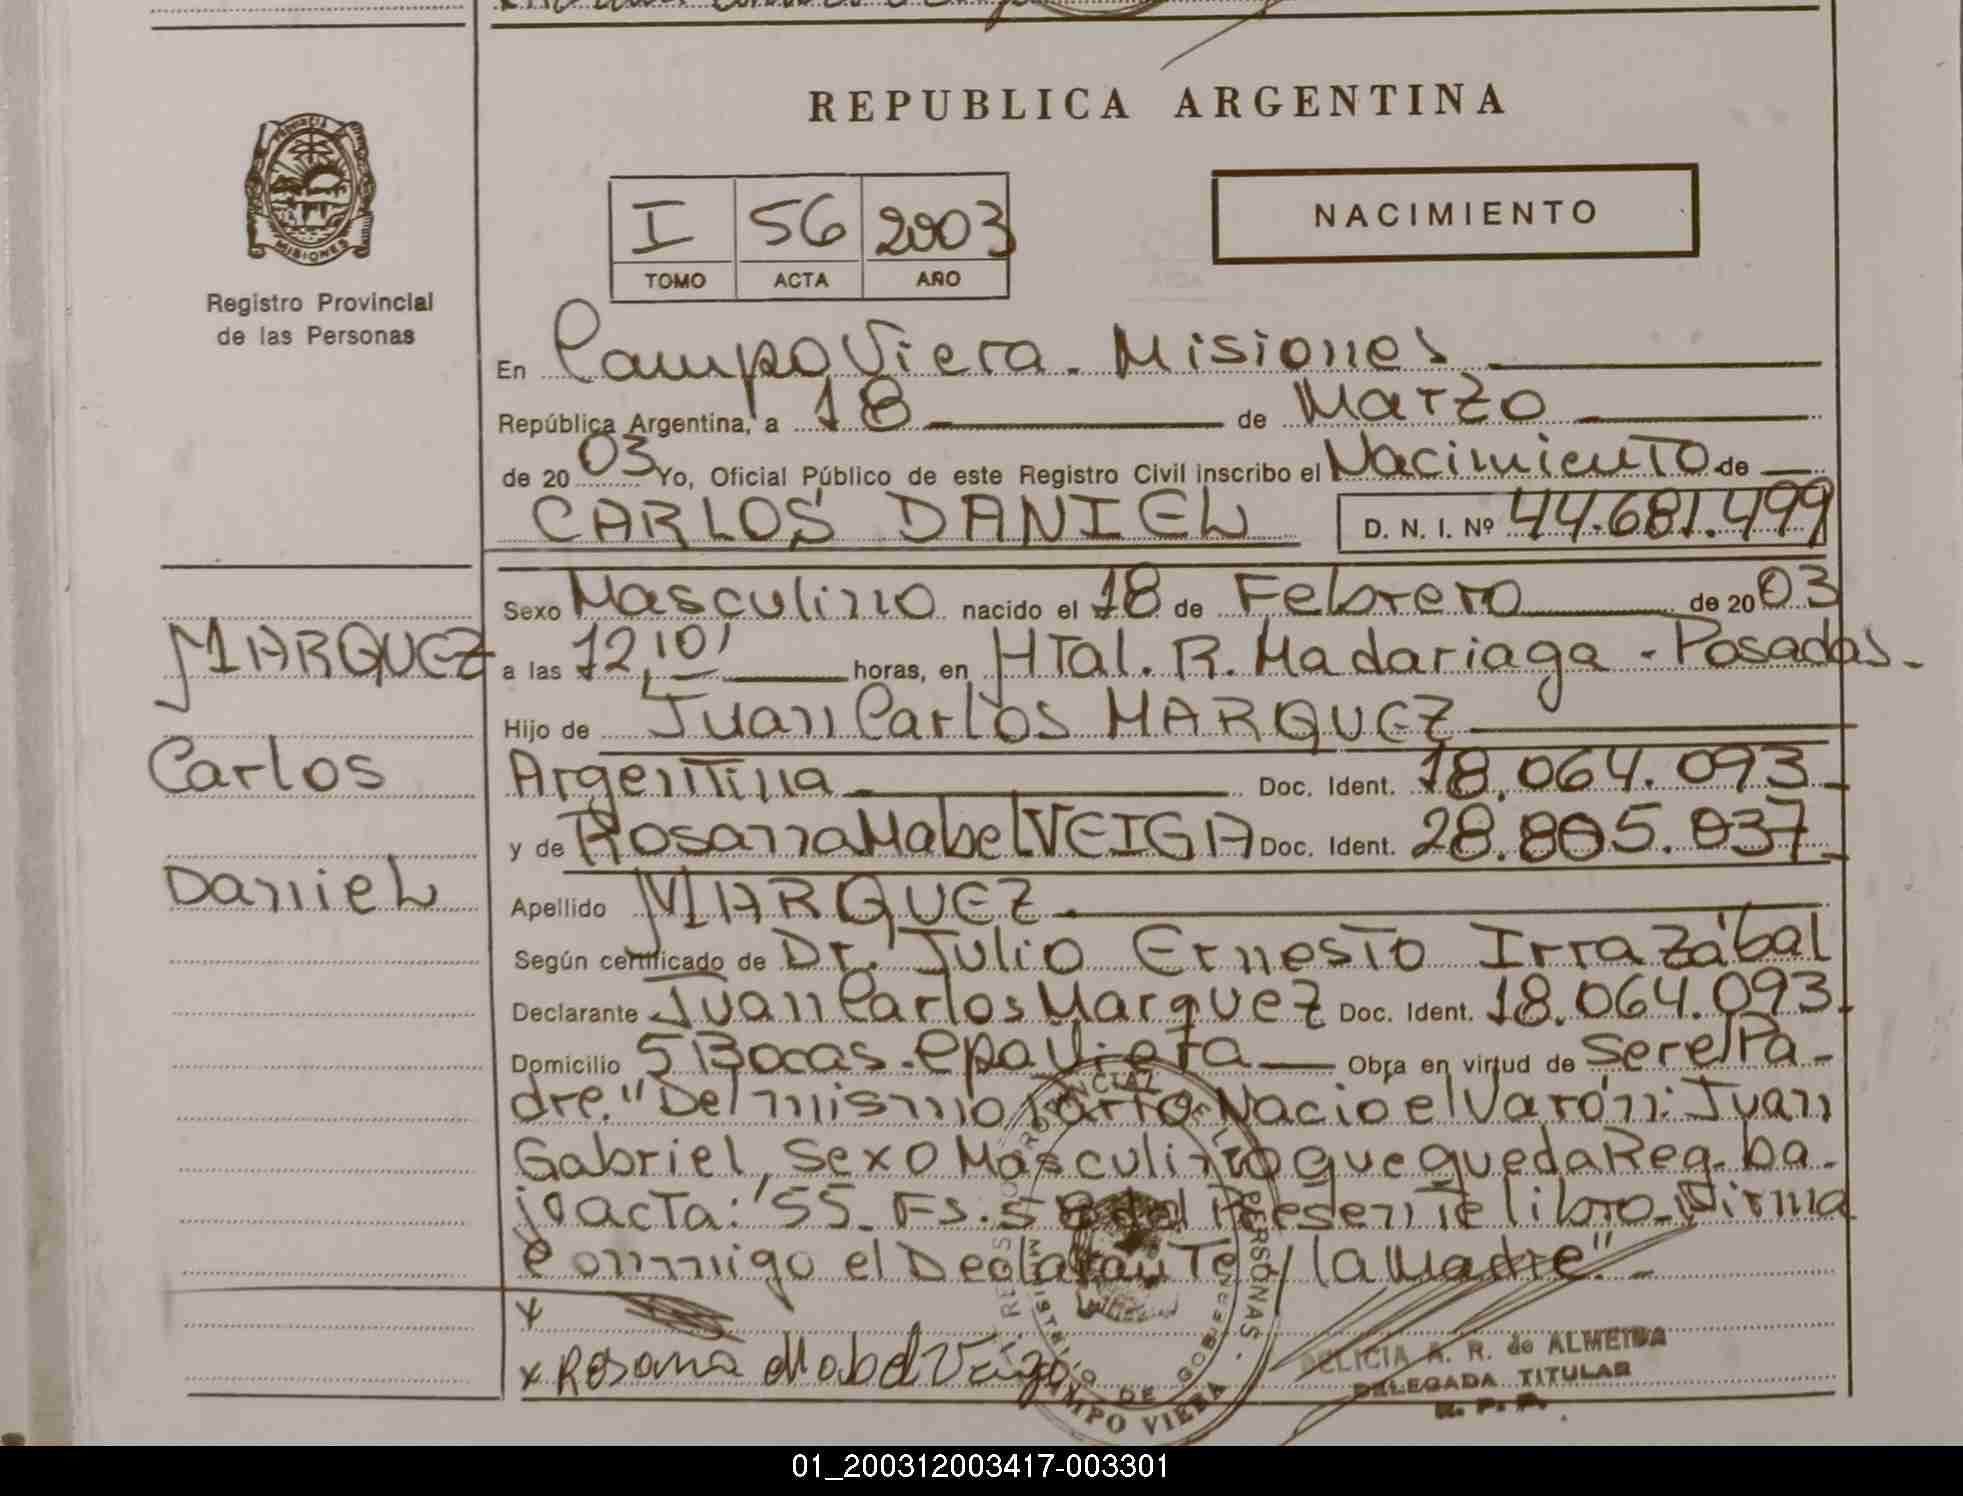 REPUBLICA ARGENTINA
PROVINCIA DE
MISIONES
Registro Provincial
de las Personas
I 56 2003
TOMO ACTA AÑO
NACIMIENTO
En Campo Viera - Misiones
República Argentina, a 18 de Marzo
de 2003 Yo, Oficial Público de este Registro Civil inscribo el Nacimiento de
CARLOS DANIEL D. N. I. Nº 44.681.499
Sexo Masculino nacido el 18 de Febrero de 2003
MARQUEZ
a las 12,10' horas, en HTal. R. Madariaga - Posadas.-
Hijo de Juan Carlos MARQUEZ
Carlos
Argentina Doc. Ident. 18.064.093
y de Rosana Mabel VEIGA Doc. Ident. 28.805.037
Daniel
Apellido MARQUEZ
Según certificado de Dr. Julio Ernesto Irrazábal
Declarante Juan Carlos Marquez Doc. Ident. 18.064.093
Domicilio 5 Bocas - Cpo Viera Obra en virtud de Ser el Pa-
dre. "Del mismo Parto Nacio el Varón: Juan
Gabriel, Sexo Masculino que queda Reg. ba-
jo acta: 55. Fs. 58 del Presente libro. Firma
Conmigo el Declarante y la Madre".-
x
x Rosana Mabel Veiga
DELICIA A. R. de ALMEIDA
DELEGADA TITULAR
R. P. P.
CAMPO VIERA
01_200312003417-003301